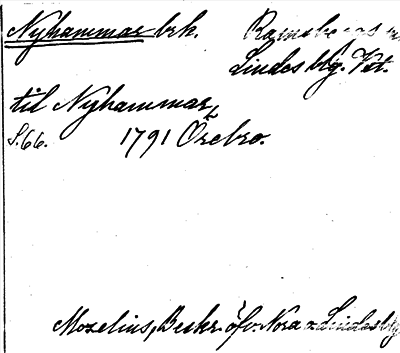 Nyhammar brk. Ramsbergs
Lindes blg. Vst.
til Nyhammar,
S.66. 1791 Örebro.
Moxelius, Beskr. öfv. Nora o. Lindesbg